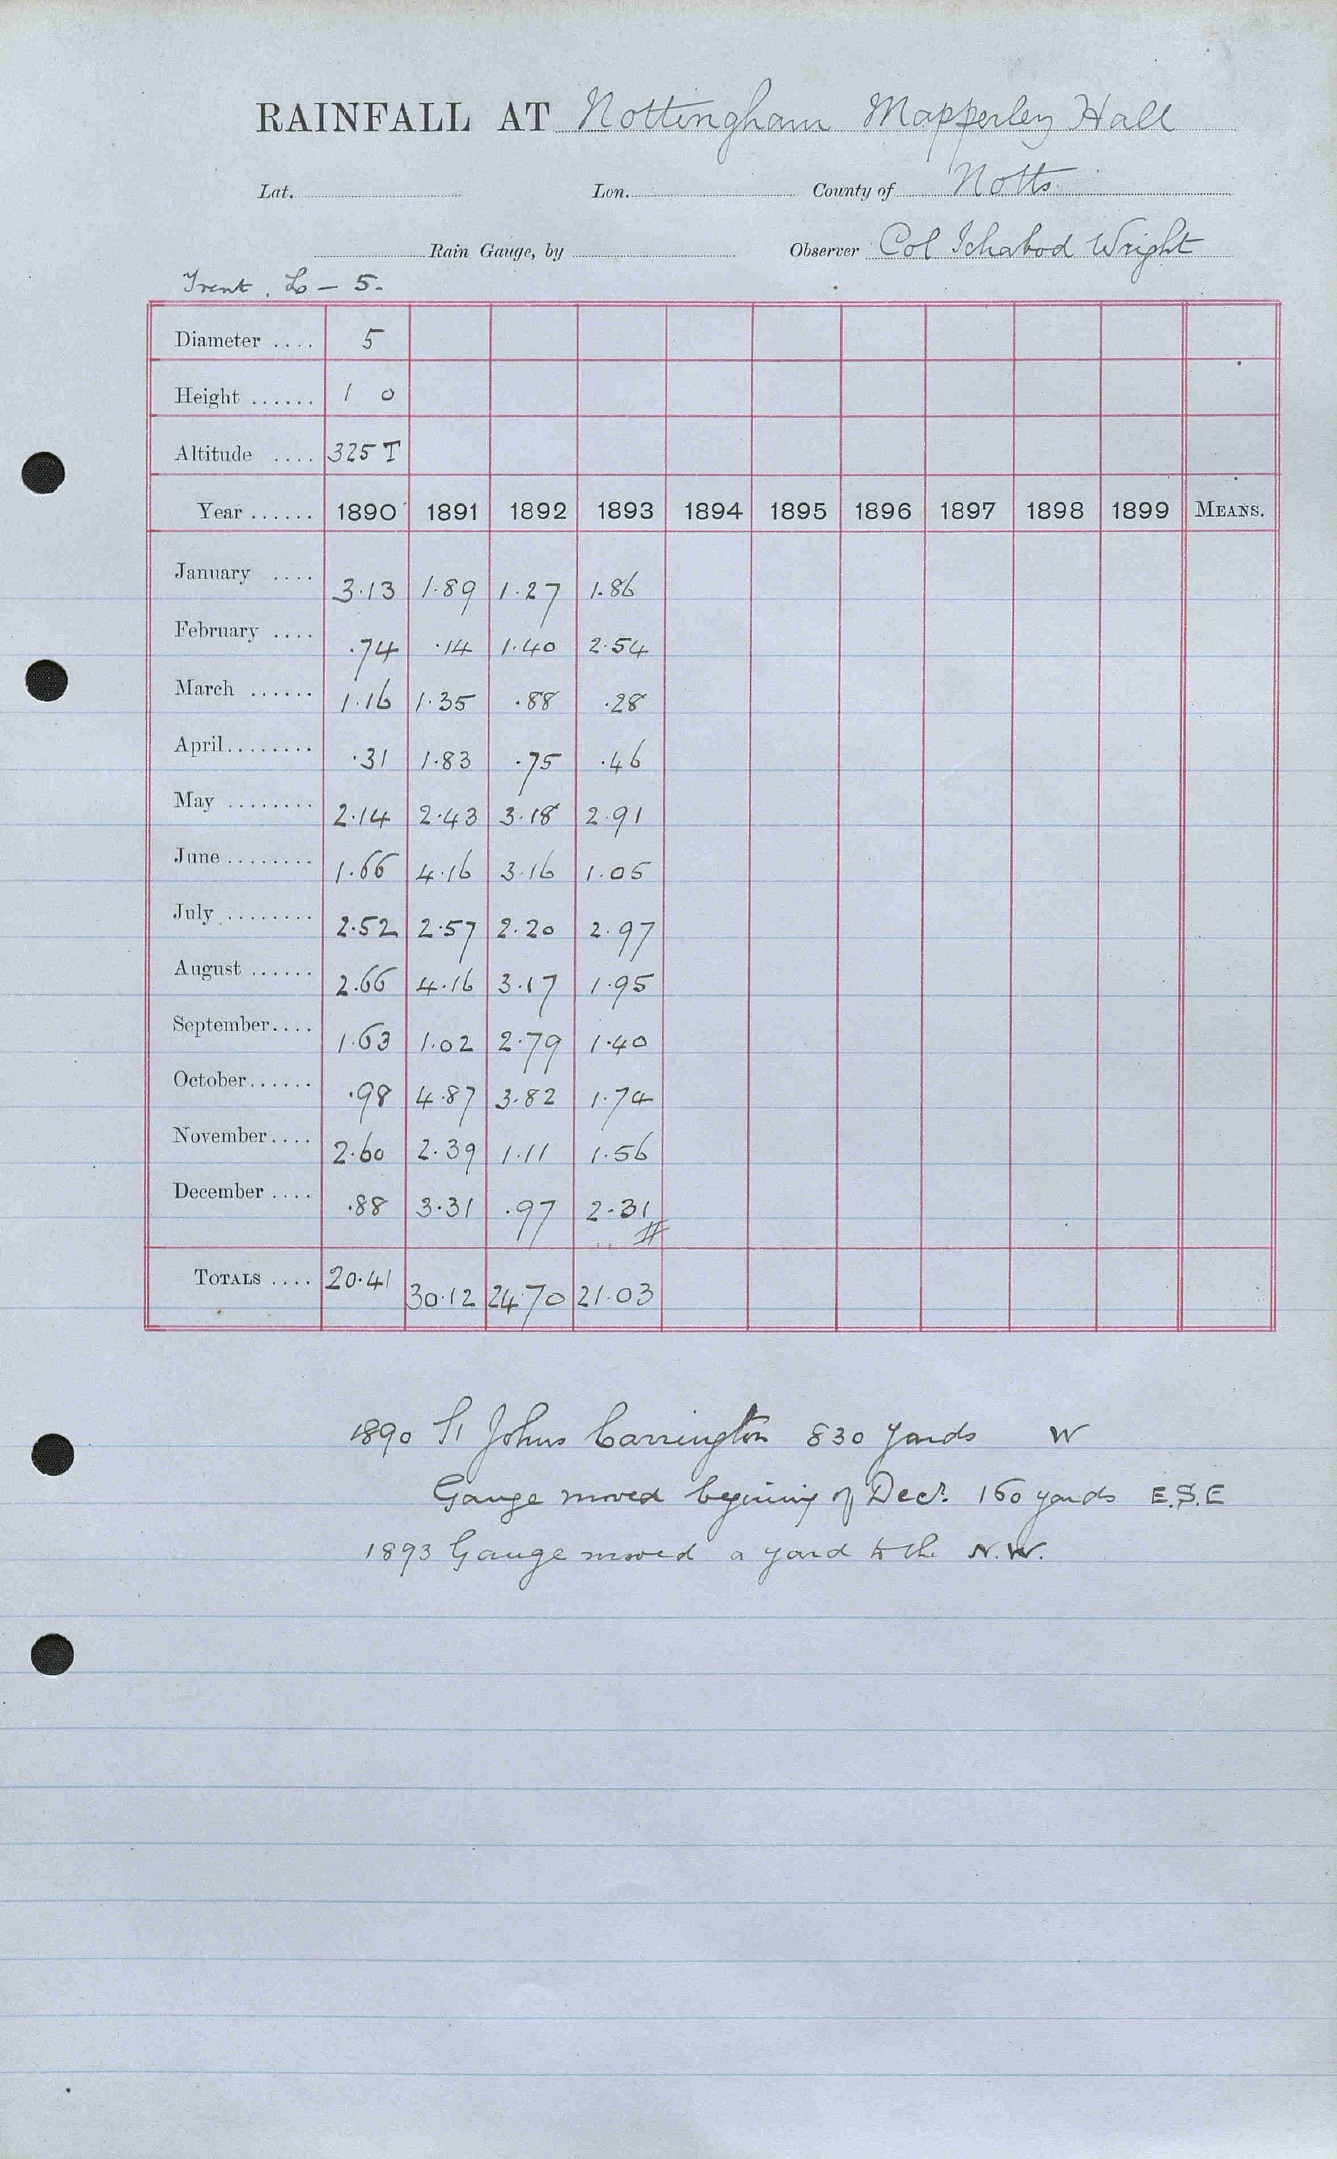 RAINFALL AT Nottingham Mapperley Hall
Lat. Lon. County of Notts
Rain Gauge, by Observer Col Ichabod Wright
Trent. L – 5.
Diameter .... 5
Height ...... 1 0
Altitude .... 325 T
Year ...... 1890 1891 1892 1893 1894 1895 1896 1897 1898 1899 MEANS.
January .... 3.13 1.89 1.27 1.86
February .... .74 .14 1.40 2.54
March ...... 1.16 1.35 .88 .28
April........ .31 1.83 .75 .46
May ........ 2.14 2.43 3.18 2.91
June ........ 1.66 4.16 3.16 1.05
July ........ 2.52 2.57 2.20 2.97
August ...... 2.66 4.16 3.17 1.95
September.... 1.63 1.02 2.79 1.40
October...... .98 4.87 3.82 1.74
November.... 2.60 2.39 1.11 1.56
December .... .88 3.31 .97 2.31
TOTALS .... 20.41 30.12 24.70 21.03
1890 St Johns Carrington 830 yards W
Gauge moved begining of Decr. 160 yards E.S.E
1893 Gauge moved a yard to the N.W.